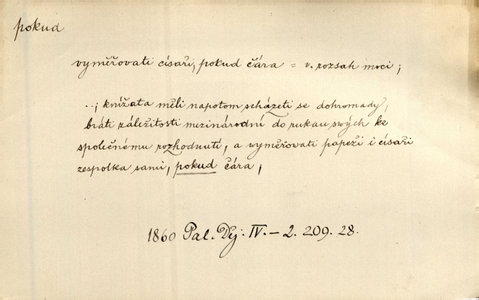 pokud
vyměřovati císaři, pokud čára = v. rozsah moci;
..; knížata měli napotom scházeti se dohromady,
bráti záležitosti mezinárodní do rukau swých ke
společnému rozhodnutí, a vyměřovati papeži i císaři
zespolka sami, pokud čára,
1860 Pal. Děj. IV. – 2. 209. 28.